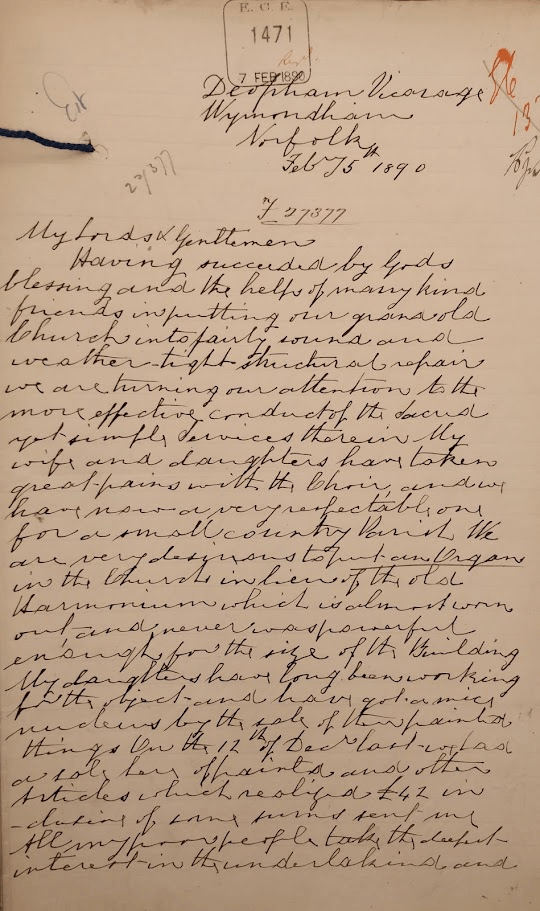 E. C. E.
1471
7 FEB 1890
Deopham Vicarage
Wymondham
Norfolk
Feby 5th 1890
27377
F 27377
My Lords & Gentlemen
Having succeeded by Gods
blessing and the help of many kind
friends in putting our grand old
Church into fairly sound and
weather-tight structural repair
we are turning our attention to the
more effective conduct of the Sacred
yet simple Services therein My
wife and daughters have taken
great pains with the Choir, and we
have now a very respectable one
for a small country Parish We
are very desirous to put an Organ
in the Church in lieu of the old
Harmonium which is almost worn
out and never was powerful
enough for the size of the Building
My daughters have long been working
for the object and have got a nice
nucleus by the sale of their painted
things On the 12th of Decr last we had
a sale here of painted and other
Articles which realized £42 in
-clusive of some sums sent me
All my poor people take the deepest
interest in the undertaking and